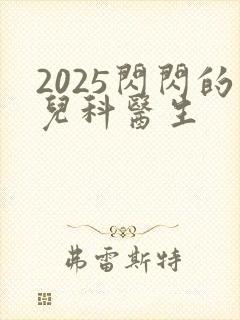 2025閃閃的
兒科醫生
弗雷斯特